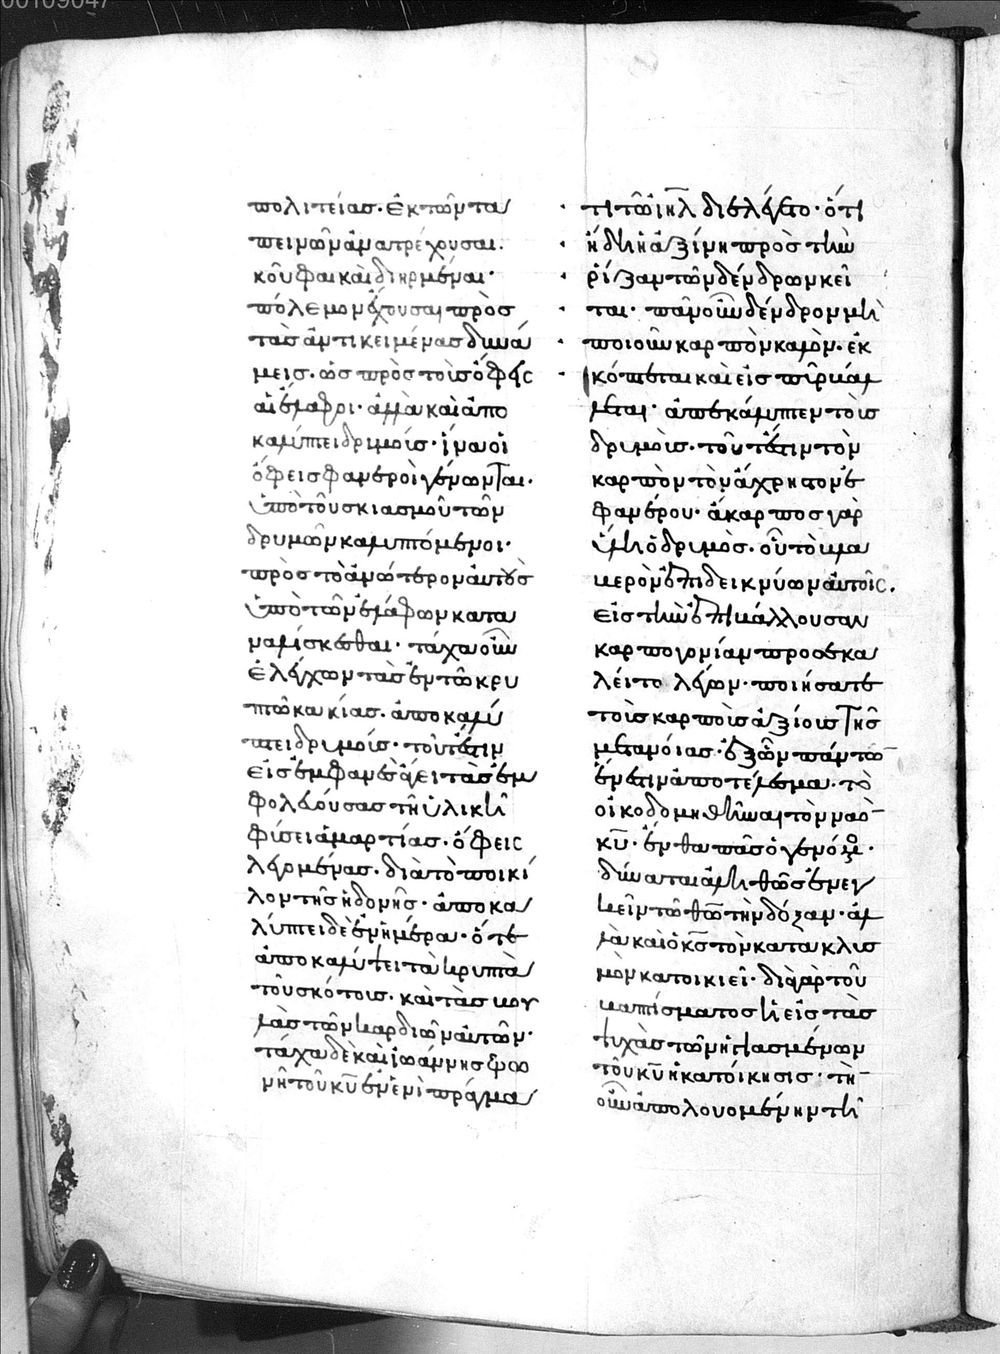 πολιτείας· ἐκ τῶν τα
πεινῶν ἀνατρέχουσαι.
κοῦφαι καὶ διηρμέναι·
πόλεμον ἔχουσαι πρὸς
τὰς ἀντικειμένας δυνά
μεις. ὡς πρὸς τοὺς ὄφεις
αἱ ἔλαφοι· ἀλλὰ καὶ ἀπο
καλύπτει δρυμούς· ἵνα οἱ
ὄφεις φανεροὶ γένωνται.
ὑπὸ τοῦ σκιασμοῦ τῶν
δρυμῶν καλυπτόμενοι·
πρὸς τὸ ἀνώτερον αὐτοὺς
ὑπὸ τῶν ἐλάφων κατα
ναλίσκεσθαι· τάχα οὖν
ἐλέγχων τὰς ἐν τῶ κρυ
πτῶ κακίας. ἀποκαλύ
πτει δρυμούς· τουτέστιν
εἰς ἐμφανὲς ἄγει τὰς ἐμ
φολευούσας τῆ ὑλικῆ
φύσει ἁμαρτίας. ὄφεις
λεγομένας. διὰ τὸ ποικί
λον τῆς ἡδονῆς· ἀποκα
λύπτει δὲ ἐν ἡμέρα· ὅτε
ἀποκαλύψει τὰ κρυπτὰ
τοῦ σκότους. καὶ τὰς βου
λὰς τῶν καρδιῶν αὐτῶν·
τάχα δὲ καὶ ἰωάννης φω
νὴ τοῦ κῡ ἐν ἐνὶ πράγμα
τι τῶ ἰηλ διελέγετο· ὅτι
ἤδη ἡ ἀξίνη πρὸς τὴν
ρίζαν τῶν δένδρων κεῖ
ται· πᾶν οὖν δένδρον μὴ
ποιοῦν καρπὸν καλὸν. ἐκ
κόπτεται καὶ εἰς πῦρ βάλ
λεται· ἀπεκάλυπτεν τοὺς
δρυμοὺς. τουτέστιν τὸν
καρπὸν τὸν ἄχρηστον ἐ
φανέρου· ἄκαρπος γὰρ
ὕλη ὁ δρυμὸς. οὐ τὸ βλα
βερὸν ἐπιδεικνύων αὐτοῖς.
εἰς τὴν ἐπιβάλλουσαν
καρπογονίαν προσεκα
λεῖτο λέγων· ποιήσατε
τοὺς καρποὺς ἀξίους τῆς
μετανοίας· ἐξ ὧν πάντω
ἐνεστιν ἀποτέλεσμα. τὸ
οἰκοδομηθῆναι τὸν ναὸ
κῡ· ἔνθα πᾶς ὁ γενόμ
δύναται ἀληθῶς ἐνεγ
κεῖν τῶ θω τὴν δόξαν. ἀλ
λὰ καὶ ὁ κς τὸν κατακλυς
μὸν κατοικιεῖ· διὰ γὰρ τοῦ
βαπτίσματος ἡ εἰς τὰς
ψυχὰς τῶν ἡγιασμένων
τοῦ κῡ ἡ κατοίκησις· τὴ
οὖν ἀπολουομένην τῆ